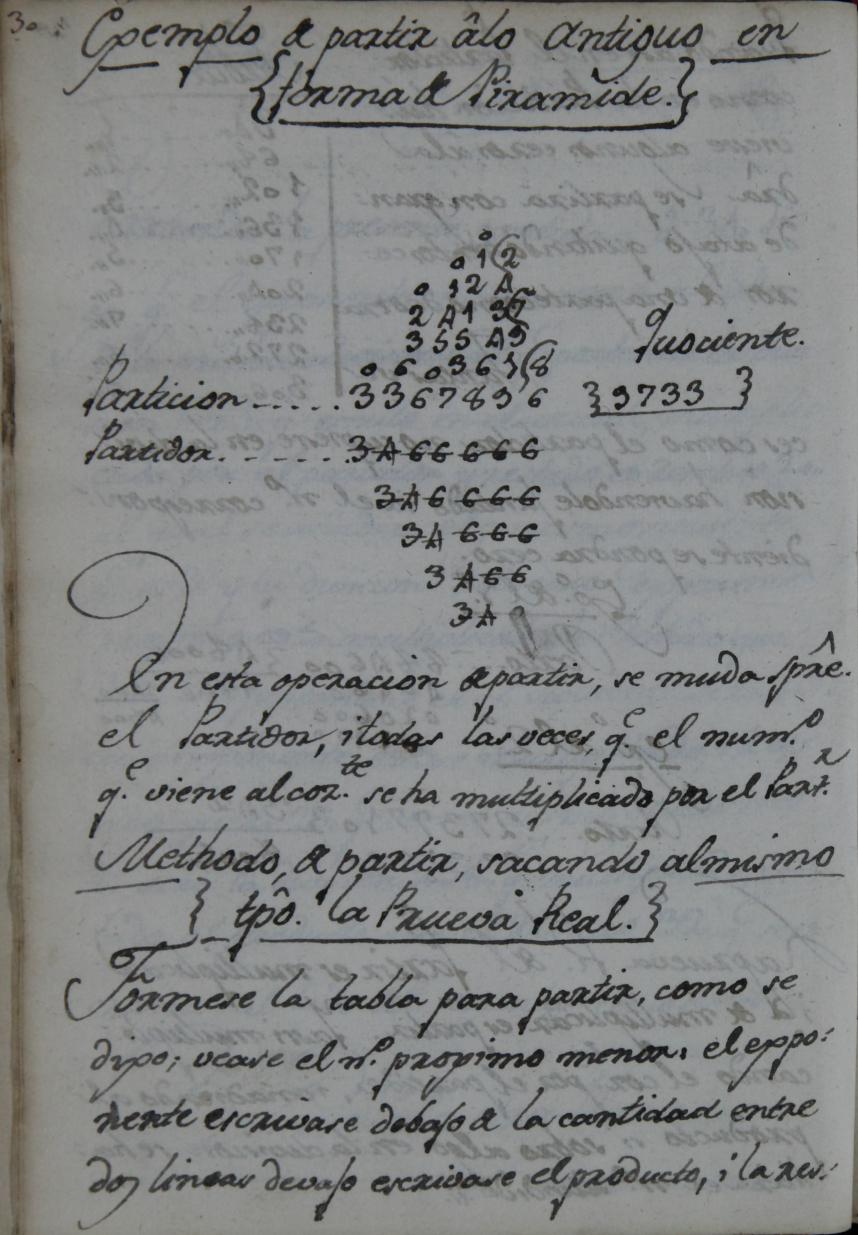 30
Exemplo de partir âlo antiguo en
{forma de Piramide.}
0
01(2
0124
2413(7
35549
060361(8
Quociente.
Particion......3367896 }9733}
Partidor.......3466666
346666
34666
3466
34
En esta operacion de partir, se muda spre.
el Partidor, i todas las veces, q.e el num.o
q.e viene al cor.te se ha multiplicado por el Part.r
Methodo, de partir, sacando al mismo
} tpô. la Prueva Real.}
Formese la tabla para partir, como se
dixo; vease el n.o proximo menor: el expo:
nente escrivase debajo de la cantidad entre
dos lineas devajo escrivase el producto, i la res: